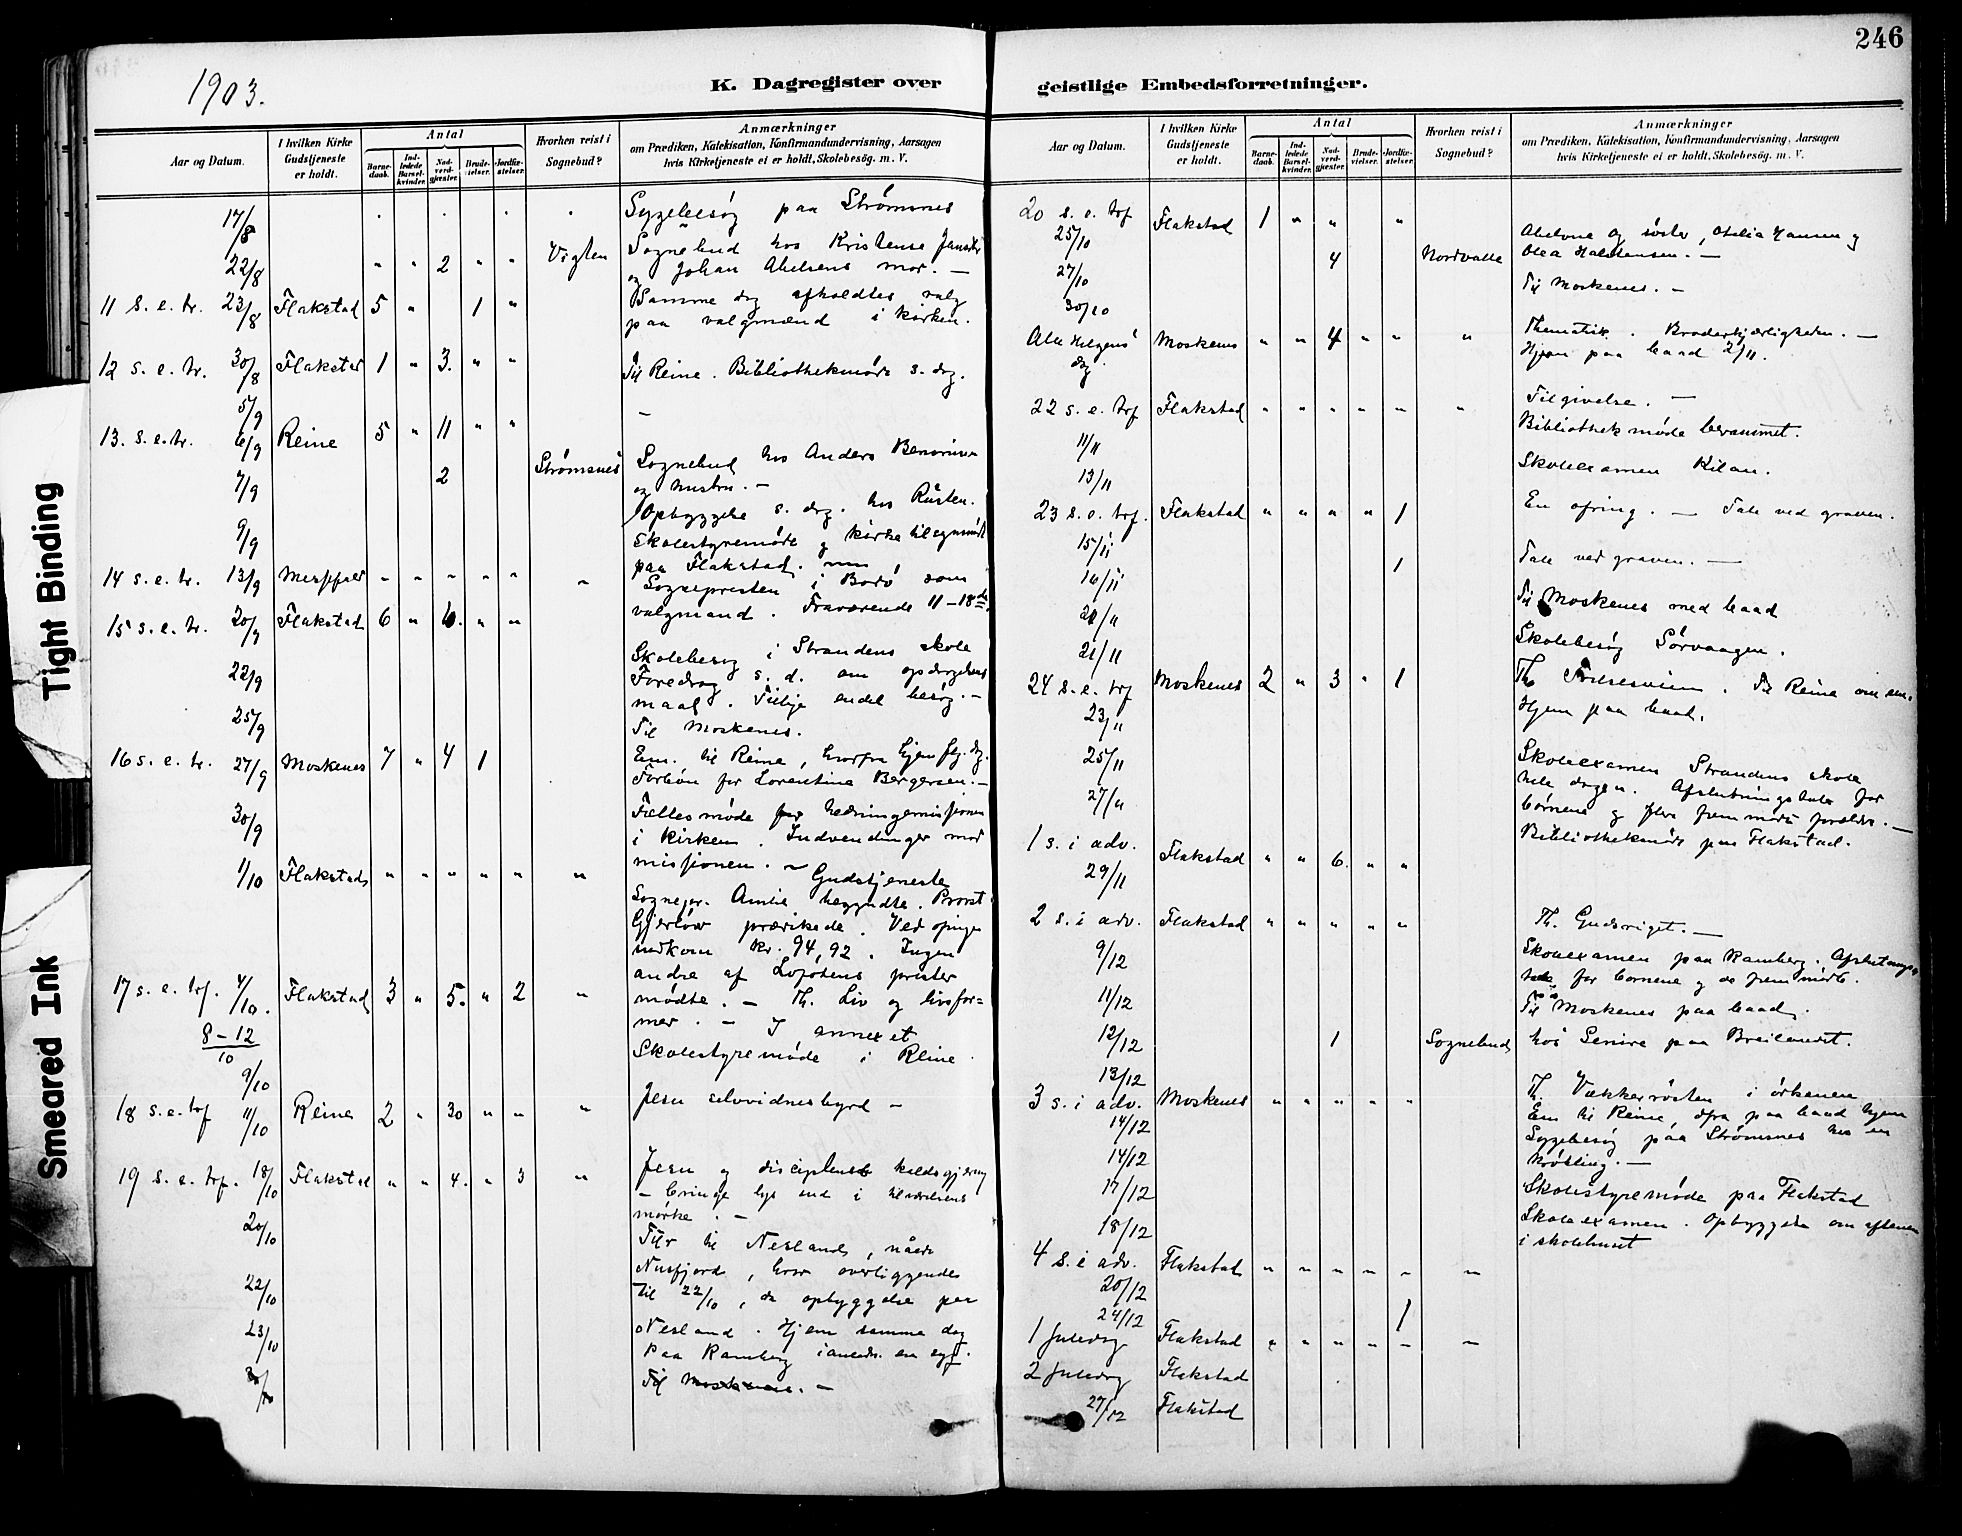 246
1903.
K. Dagregister over
geistlige Embedsforretninger.
Tight Binding
Smeared Ink
Aar og Datum.
I hvilken Kirke Gudstjeneste er holdt.
Antal
Barne-daab.
Ind-ledede Barsel-kvinder.
Nad-verd-gjæster.
Brude-vielser.
Jordfæ-stelser.
Hvorhen reist i Sognebud?
Anmærkninger
om Prædiken, Katekisation, Konfirmandundervisning, Aarsagen
hvis Kirketjeneste ei er holdt, Skolebesøg. m. V.
17/8 Sygebesøg paa Strømsnes
22/8 " " 2 " " Vigten Sognebud hos Kristense
og Johan Abelsens mor. —
11 s. e. tr. 23/8 Flakstad 5 " 1 " Samme dag afholdtes valg
paa valgmænd i kirken.
12 s. e. tr. 30/8 Flakstad 1 " 3. " "
5/9 Til Reine. Bibliothekmøde s. dag.
13. s. e. tr. 6/9 Reine 5 " 11 " " —
7/9 2 Strømsnes Sognebud hos Anders
og hustru. —
Opbyggelse s. dag. hos Rusten.
9/9 Skolestyremøde og kirketilsynsmøde
paa Flakstad.
14 s. e. tr. 13/9 Messefald " " " " " " Sognepresten i Bodø som
valgmand. Fraværende 11–18de
15 s. e. tr. 20/9 Flakstad 6 " 6. " "
22/9 Skolebesøg i Strandens skole
Foredrag s. d. om opdragelses
maal. Tillige endel besøg. —
25/9 Til Moskenes.
16 s. e. tr. 27/9 Moskenes 7 " 4 1 Em. til Reine, hvorfra hjem flg. dg.
Forbøn for Lorentine Bergersen. —
30/9 Fællesmøde for hedningemissionen
i kirken. Indvendinger mod
missionen. —
1/10 Flakstad " " " " " " Gudstjeneste
Sognepr. Amlie begyndte. Provst
Gjerløw prædikede. Ved ofringen
indkom kr. 94,92. Ingen
andre af Lofotens prester
17 s. e. trf. 4/10. Flakstad 3 " 5. " 2 " mødte. — Th. Liv og livsfor=
mer. — I annexet
8–12/10 Skolestyremøde i Reine.
9/10
18 s. e. trf 11/10 Reine 2 " 30 " " " Jesu selvvidnesbyrd —
19 s. e. trf. 18/10 Flakstad " " 4. " 3 " Jesu og disciplenes kaldsgjerning
— bringe lys ind i tilværelsens
mørke. —
20/10 Tur til Nesland, nåede
Nusfjord, hvor overliggendes
22/10 til 22/10, da opbyggelse paa
23/10 Nesland. Hjem samme dag
Paa Ramberg en syg.
Til Moskenes. —
Aar og Datum.
I hvilken Kirke Gudstjeneste er holdt.
Antal
Barne-daab.
Ind-ledede Barsel-kvinder.
Nad-verd-gjæster.
Brude-vielser.
Jordfæ-stelser.
Hvorhen reist i Sognebud?
Anmærkninger
om Prædiken, Katekisation, Konfirmandundervisning, Aarsagen
hvis Kirketjeneste ei er holdt, Skolebesøg. m. V.
20 s. e. trf 25/10 Flakstad 1 " " "
27/10 4 Nordvalle og søster, Otelia Hansen og
Olea Halstensen. —
30/10 Til Moskenes. —
Alle Helgens dag. Moskenes " " 4 " " " Thematik. Broderkjærligheden. —
Hjem paa baad 2/11.
22 s. e. trf Flakstad " " " " " " Tilgivelse. —
11/11 Bibliothekmøde berammet.
13/11 Skoleexamen Kilan.
23 s. e. trf. 15/11 Flakstad " " " " 1 En ofring. — Tale ved graven.
16/11 1 Tale ved graven. —
20/11 Til Moskenes med baad
21/11 Skolebesøg Sørvaagen.
24 s. e. trf Moskenes 2 " 3 " 1 Th. Til Reine om em.
23/11 Hjem paa baad.
25/11 Skoleexamen Strandens skole
27/11 hele dagen. Afslutningstale for
børnene og flere fremmødte forældre. —
Bibliothekmøde paa Flakstad.
1 s. i adv. 29/11 Flakstad " " 6. " "
2 s. i adv. Flakstad " " " " " Th. Gudsriget. —
9/12 Skoleexamen paa Ramberg. Afslutnings
tale for børnene og de fremmødte.
11/12 Til Moskenes paa baad.
12/12 1 Sognebud hos paa Breilandet.
13/12
3 s. i adv. Moskenes " " " " " Th. Vækkerrøsten i ørkenen
14/12 Em til Reine, dfra paa baad hjem
14/12 Sygebesøg paa Strømsnes hos en
krøbling. —
17/12 Skolestyremøde paa Flakstad
18/12 Skoleexamen. Opbyggelse om aftenen
i skolehuset
4 s. i adv. 20/12 Flakstad " " " " " "
24/12 1
1 Juledag Flakstad " " " " " "
2 Juledag Flakstad
27/12 Flakstad